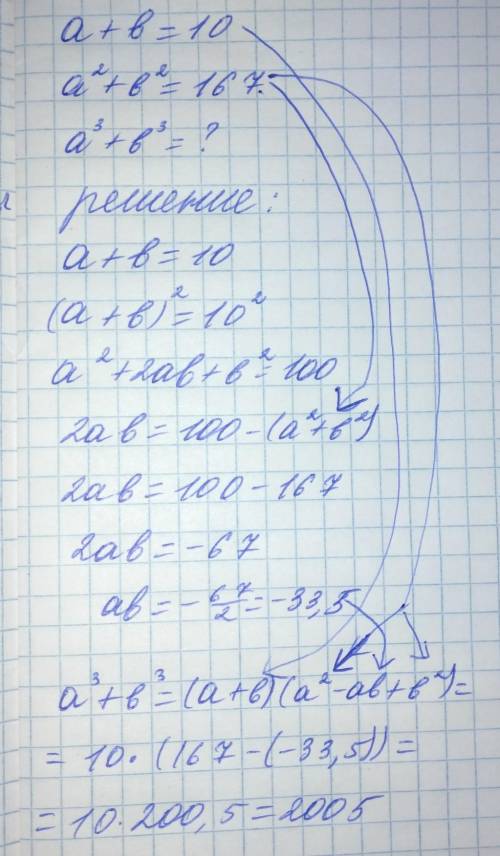 a + в = 10
a² + в² = 167.
a³ + в³ = ?
решение:
a + в = 10
(a + в)² = 10²
a² + 2aв + в² = 100
2aв = 100 - (a² + в²)
2aв = 100 - 167
2aв = -67
aв = - 67/2 = -33,5
a³ + в³ = (a + в)(a² - aв + в²) =
= 10 · (167 - (-33,5)) =
= 10 · 200,5 = 2005